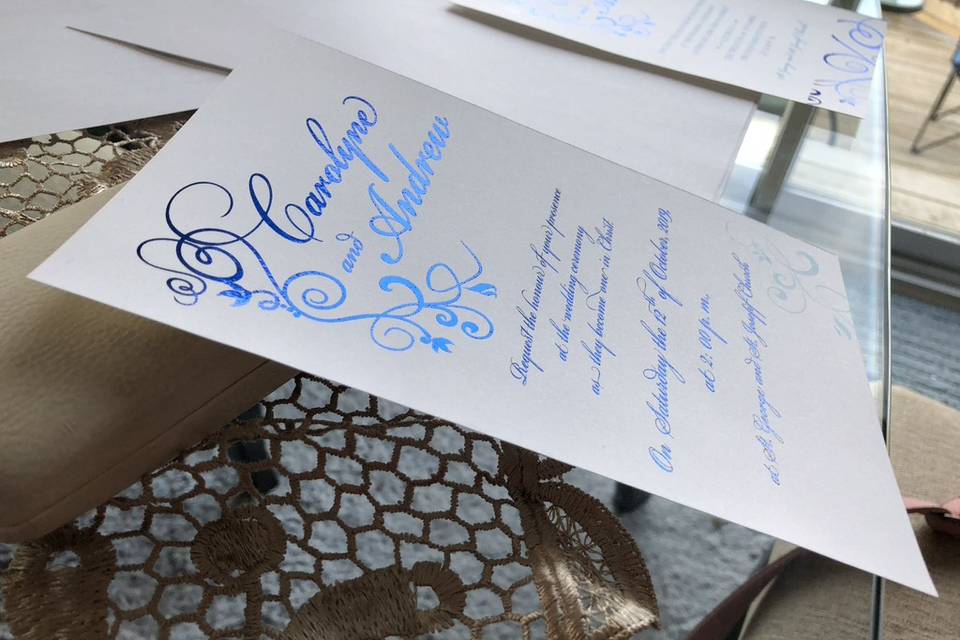 Carolyne
and Andrew
Request the honour of your presence
at the wedding ceremony
as they become one in Christ
On Saturday the 12th of October 2019
at 2:00 p.m.
at St. George and St. Joseph Church